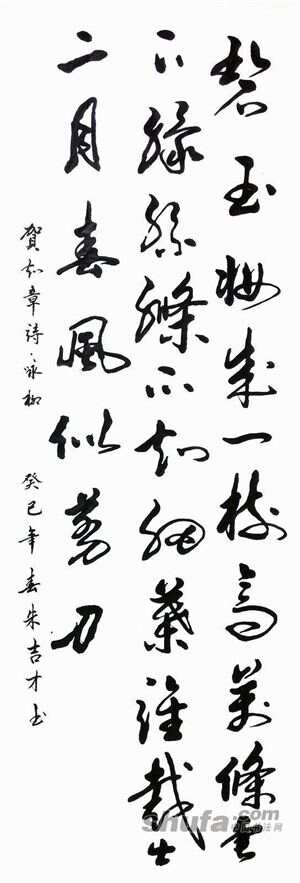 碧玉妝成一樹高萬條垂
下綠絲縧不知細葉誰裁出
二月春風似剪刀
賀知章詩咏柳 癸巳年春朱吉才书
shufa.com